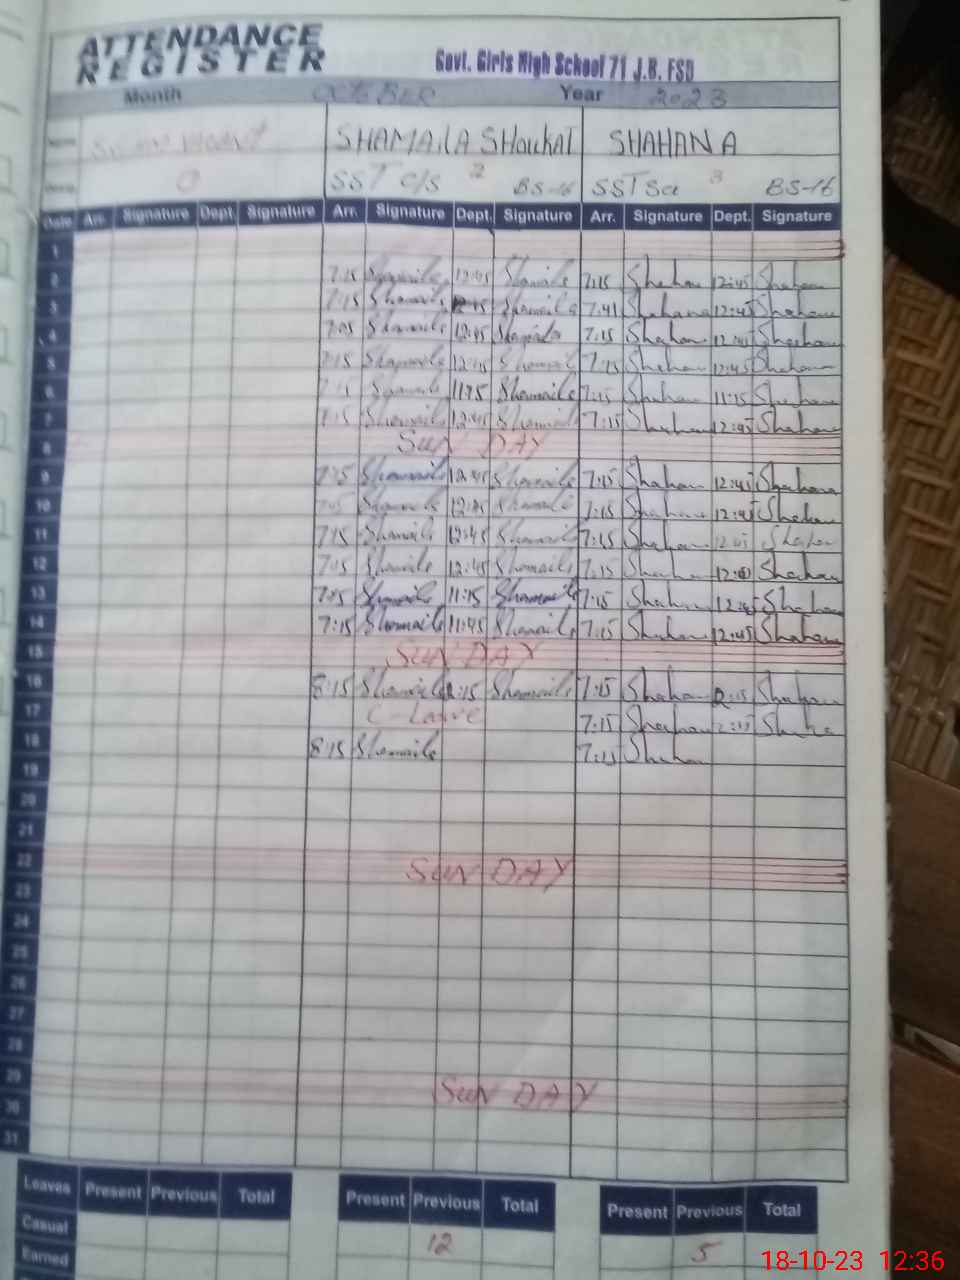 ATTENDANCE
REGISTER
Govt. Girls High School 71 J.B. FSD
Month OCtoBER Year 2023
SHAMAilA SHouKAT SHAHANA
0 SST C/S 2 BS-16 SST Sci 3 BS-16
Date Arr. Signature Dept. Signature Arr. Signature Dept. Signature Arr. Signature Dept. Signature
1
2 7:15 Shamaila 12:45 Shamaila 7:15 Shahana 12:45 Shahana
3 7:15 Shamaila Shamaila 7:41 Shahana 12:45 Shahana
4 Shamaila 12:45 Shamaila 7:15 Shahana Shahana
5 7:15 Shamaila Shamaila Shahana 12:45 Shahana
6 Shamaila Shamaila Shahana 11:15 Shahana
7 7:15 Shamaila 12:45 Shamaila 7:15 Shahana 12:45 Shahana
8 SUN DAY
9 Shamaila 12:45 Shamaila 7:15 Shahana 12:45 Shahana
10 Shamaila 12:45 Shamaila 7:15 Shahana 12:45 Shahana
11 7:15 Shamaila 12:45 Shamaila 7:15 Shahana 12:45 Shahana
12 Shamaila 12:45 Shamaila 7:15 Shahana Shahana
13 Shamaila 11:15 Shamaila 7:15 Shahana Shahana
14 7:15 Shamaila 11:45 Shamaila 7:15 Shahana 12:45 Shahana
15 SUN DAY
16 8:15 Shamaila 2:15 Shamaila 7:15 Shahana 2:15 Shahana
17 7:15 Shahana 2:15 Shahana
18 8:15 Shamaila 7:15 Shahana
19
20
21
22 SUN DAY
23
24
25
26
27
28
29 SUN DAY
30
31
Leaves Present Previous Total Present Previous Total Present Previous Total
Casual 12 5
Earned
18-10-23 12:36